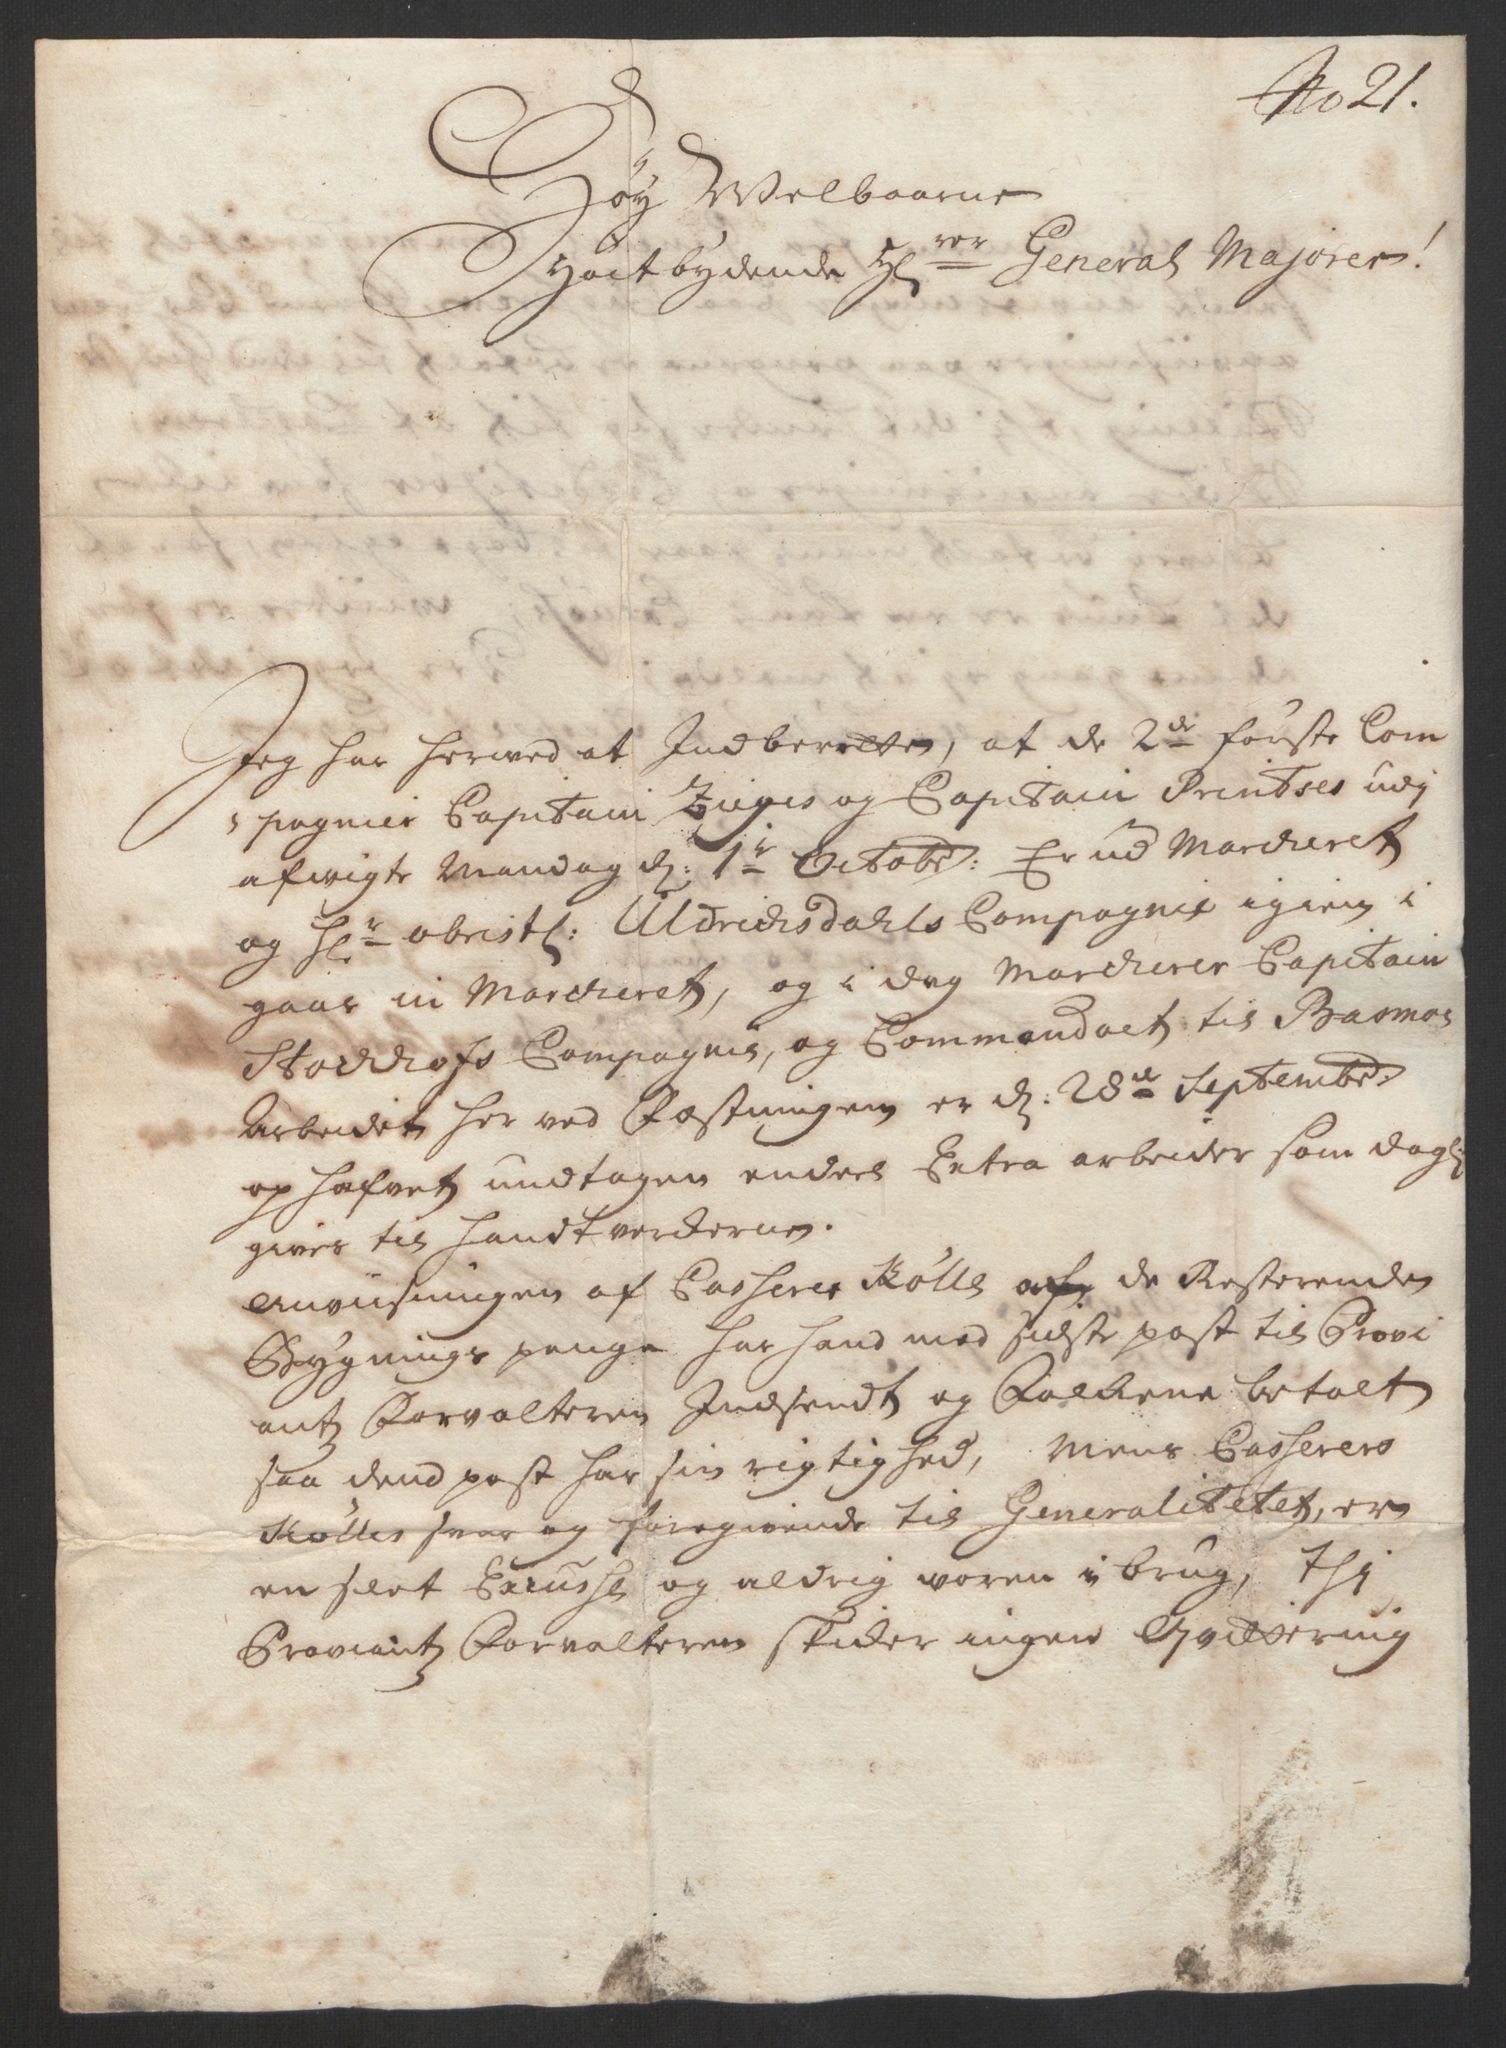 No 21.
Høy Welbaarne
Høitbydende Hr rer General Majorer!
Jeg har herved at Indberette, at de 2de første Com
pagnier Capitain Zieges og Capitain Printses udj
afvigte Mandag d: 1te Octobr: Er ud Marcheret
og Hr obristl: Uldrichsdahls Compagnie igien i
gaar in Marcheret, og i dag Marcherer Capitain
Stockhofs Compagnie, og Commandoet til Basmoe
Arbeidet her ved Fæstningen er d: 28de Septembr:
ophafvet undtagen endeel Extra arbeider som dagl:
gives til Handtverckerne.
Anviisningen af Casserer Kølle af de Resterende
Bygnings penge har hand med sidste post til Provi
ant Forvalteren Indsendt og Folckene betalt
saa dend post har sin rigtighed, Mens Casserers
Kølles svar og foregivende til Generalitetet, er
en slet Excusse og aldrig voren i brug, thj
Proviant Forvalteren skicker ingen Qvittering